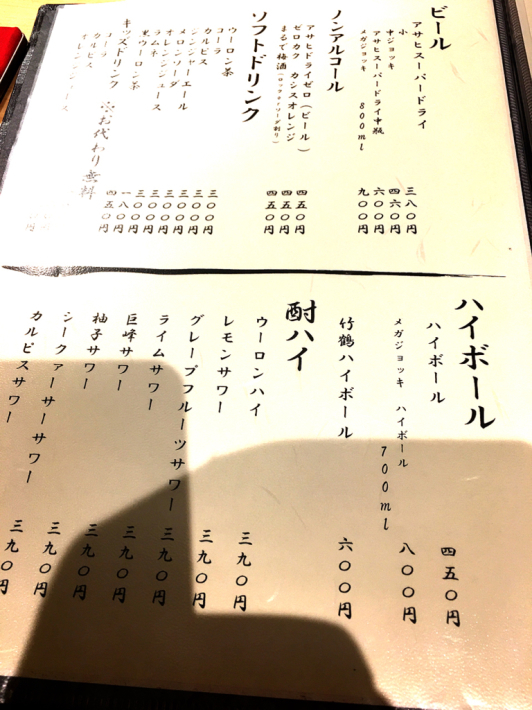 ビール
アサヒスーパードライ
小 三八〇円
中ジョッキ 四六〇円
アサヒスーパードライ中瓶 六〇〇円
メガジョッキ 800ml 九〇〇円
ノンアルコール
アサヒドライゼロ(ビール) 四五〇円
ゼロカク カシスオレンジ 四五〇円
まるで梅酒(ロックorソーダ割り) 四五〇円
ソフトドリンク
ウーロン茶 三〇〇円
コーラ 三〇〇円
カルピス 三〇〇円
ジンジャーエール 三〇〇円
メロンソーダ 三〇〇円
オレンジジュース 三〇〇円
ラムネ
黒ウーロン茶
キッズドリンク ※お代わり無料
コーラ
カルピス
オレンジジュース
ハイボール
ハイボール 四五〇円
メガジョッキ ハイボール 700ml 八〇〇円
竹鶴ハイボール 六〇〇円
酎ハイ
ウーロンハイ 三九〇円
レモンサワー 三九〇円
グレープフルーツサワー 三九〇円
ライムサワー 三九〇円
巨峰サワー 三九〇円
柚子サワー 三九〇円
シークァーサーサワー 三九〇円
カルピスサワー